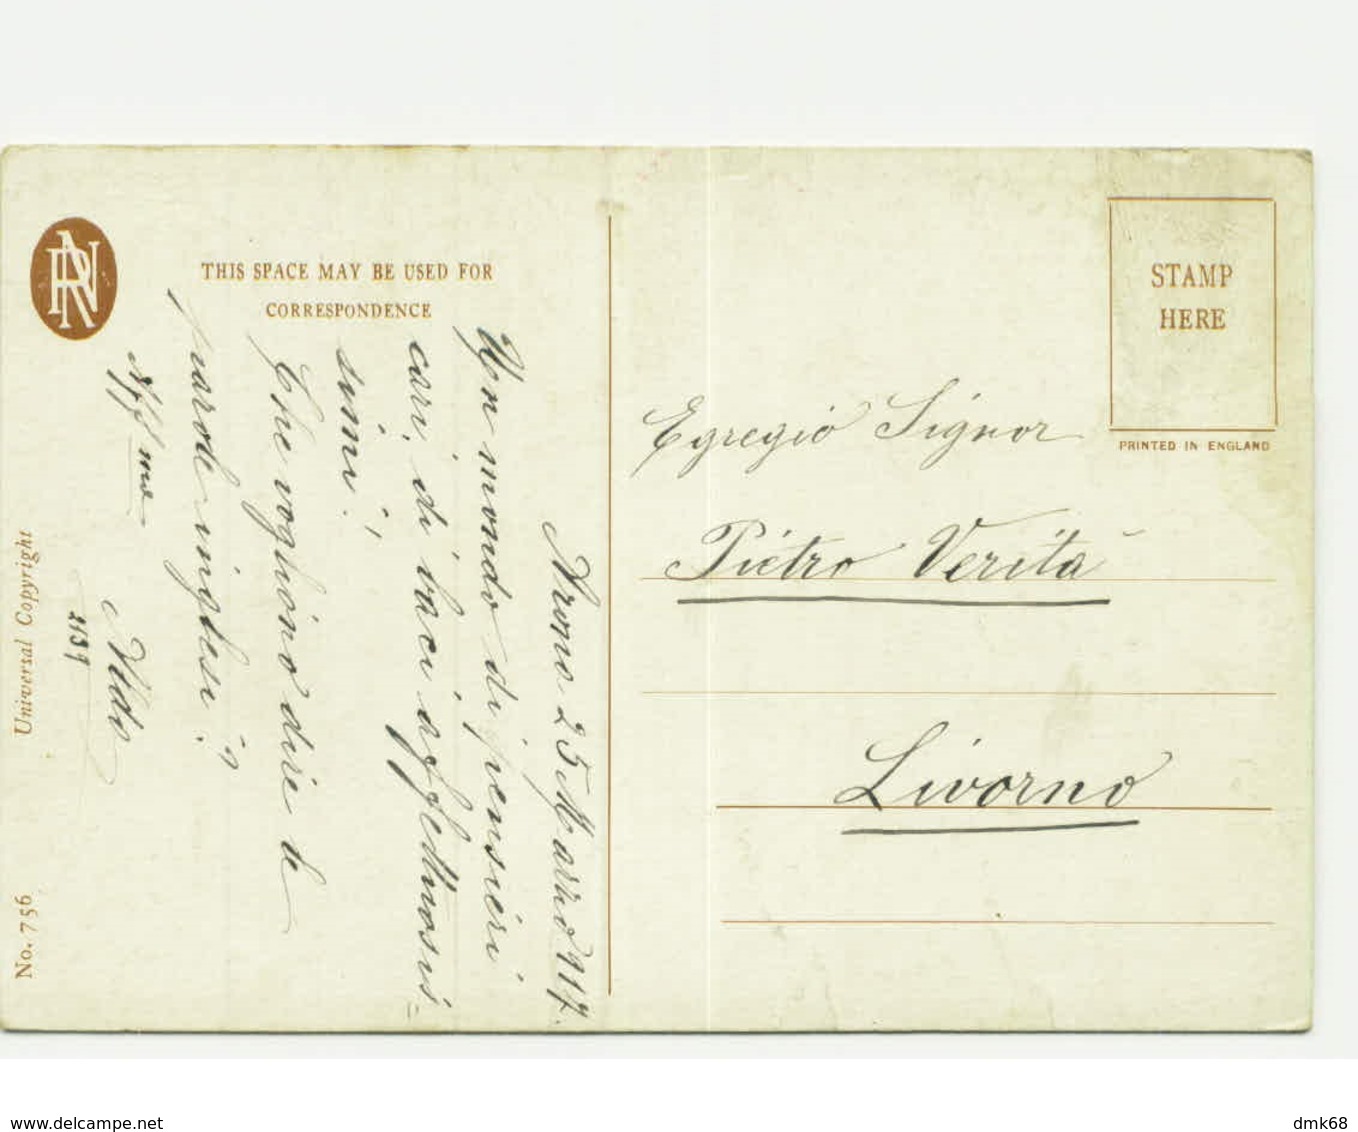 THIS SPACE MAY BE USED FOR
CORRESPONDENCE
Arona 25 Marzo 917.
Un mondo di pensieri
cari, di baci affettuosis=
simi!
Che vogliono dire le
parole inglesi?
Aff mo
Aldo
2139
Universal Copyright
No. 756
STAMP
HERE
PRINTED IN ENGLAND
Egregio Signor
Pietro Verità
Livorno
www.delcampe.net
dmk68